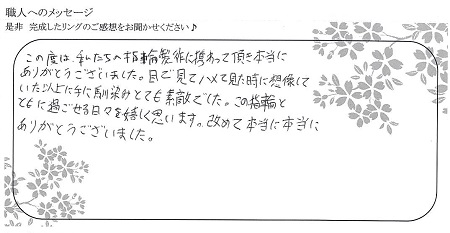 職人へのメッセージ
是非 完成したリングのご感想をお聞かせください♪
この度は、私たちの指輪製作に携わって頂き本当に
ありがとうございました。目で見てハメて見た時に想像して
いた以上に手に馴染みとても素敵でした。この指輪と
ともに過ごせる日々を嬉しく思います。改めて本当に本当に
ありがとうございました。